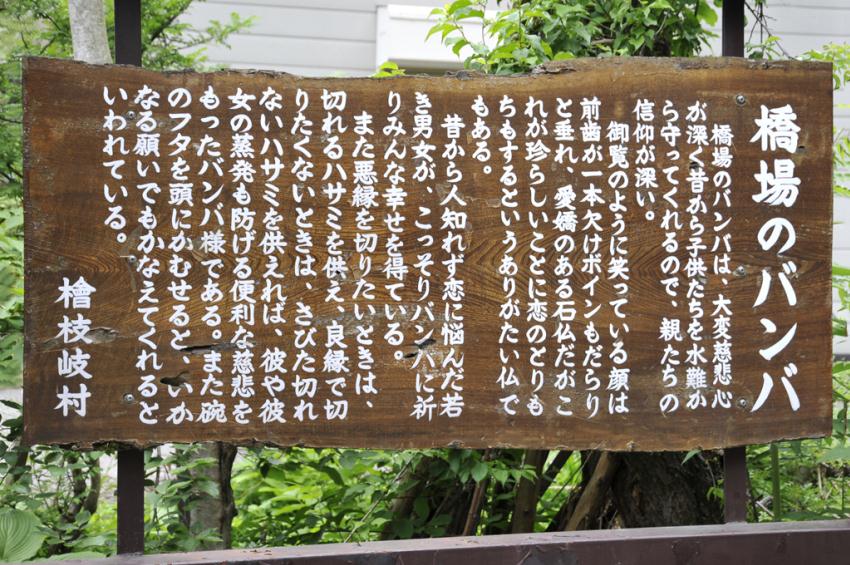 橋場のバンバ
橋場のバンバは、大変慈悲心
が深く昔から子供たちを水難か
ら守ってくれるので、親たちの
信仰が深い。
御覧のように笑っている顔は
前歯が一本欠けボインもだらり
と垂れ、愛嬌のある石仏だがこ
れが珍らしいことに恋のとりも
ちもするというありがたい仏で
もある。
昔から人知れず恋に悩んだ若
き男女が、こっそりバンバに祈
りみんな幸せを得ている。
また悪縁を切りたいときは、
切れるハサミを供え、良縁で切
りたくないときは、さびた切れ
ないハサミを供えれば、彼や彼
女の蒸発も防げる便利な慈悲を
もったバンバ様である。また碗
のフタを頭にかむせると、いか
なる願いでもかなえてくれると
いわれている。
檜枝岐村